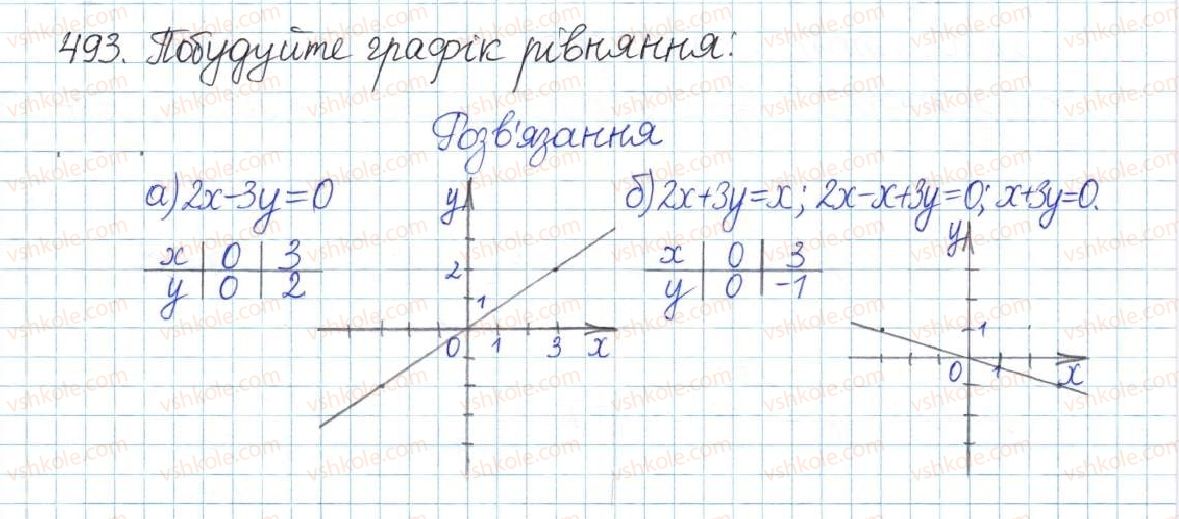 493. Побудуйте графік рівняння:
Розв'язання
а) 2x-3y=0
x | 0 | 3
y | 0 | 2
y
2
1
0 1 3 x
б) 2x+3y=x; 2x-x+3y=0; x+3y=0.
x | 0 | 3
y | 0 | -1
y
1
0 1 x
vshkole.com